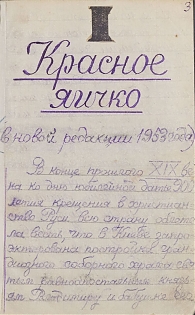 3
I
Красное
яичко
(в новой редакции 1953 года)
В конце прошлого XIX ве
ка ко дню юбилейной даты 900
летия крещения в христиан
ство Руси всю страну облете
ла весть, что в Киеве запро
ектирована постройка гран
диозного соборного храма свя
тым равноапостольным князю
Владимиру и